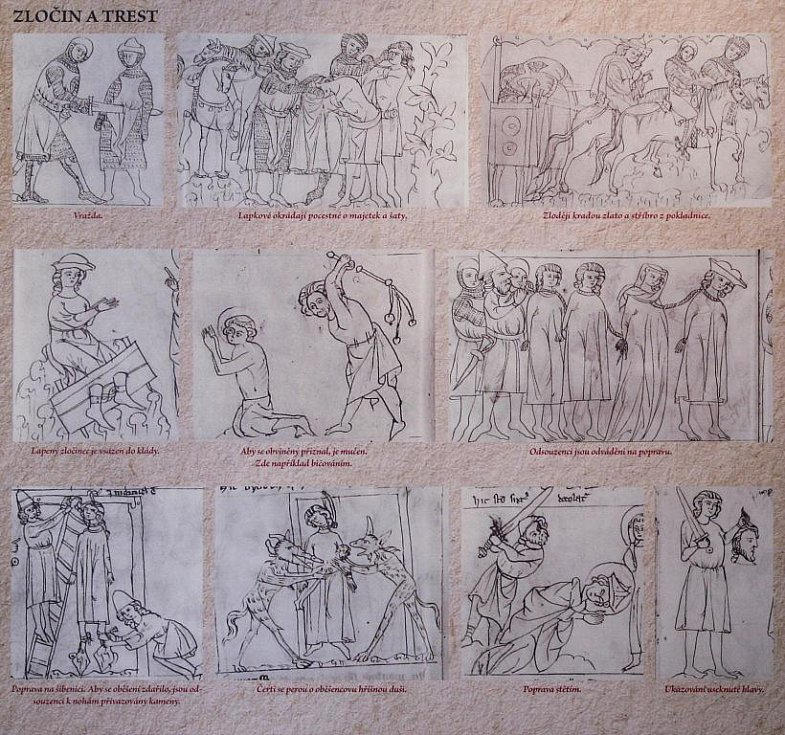 ZLOČIN A TREST
Vražda.
Lapkové okrádají pocestné o majetek a šaty.
Zloději kradou zlato a stříbro z pokladnice.
Lapený zločinec je vsazen do klády.
Aby se obviněný přiznal, je mučen.
Zde například bičováním.
Odsouzenci jsou odváděni na popravu.
Poprava na šibenici. Aby se oběšení zdařilo, jsou od-
souzenci k nohám přivazovány kameny.
Čerti se perou o oběšencovu hříšnou duši.
Poprava stětím.
Ukazování useknuté hlavy.